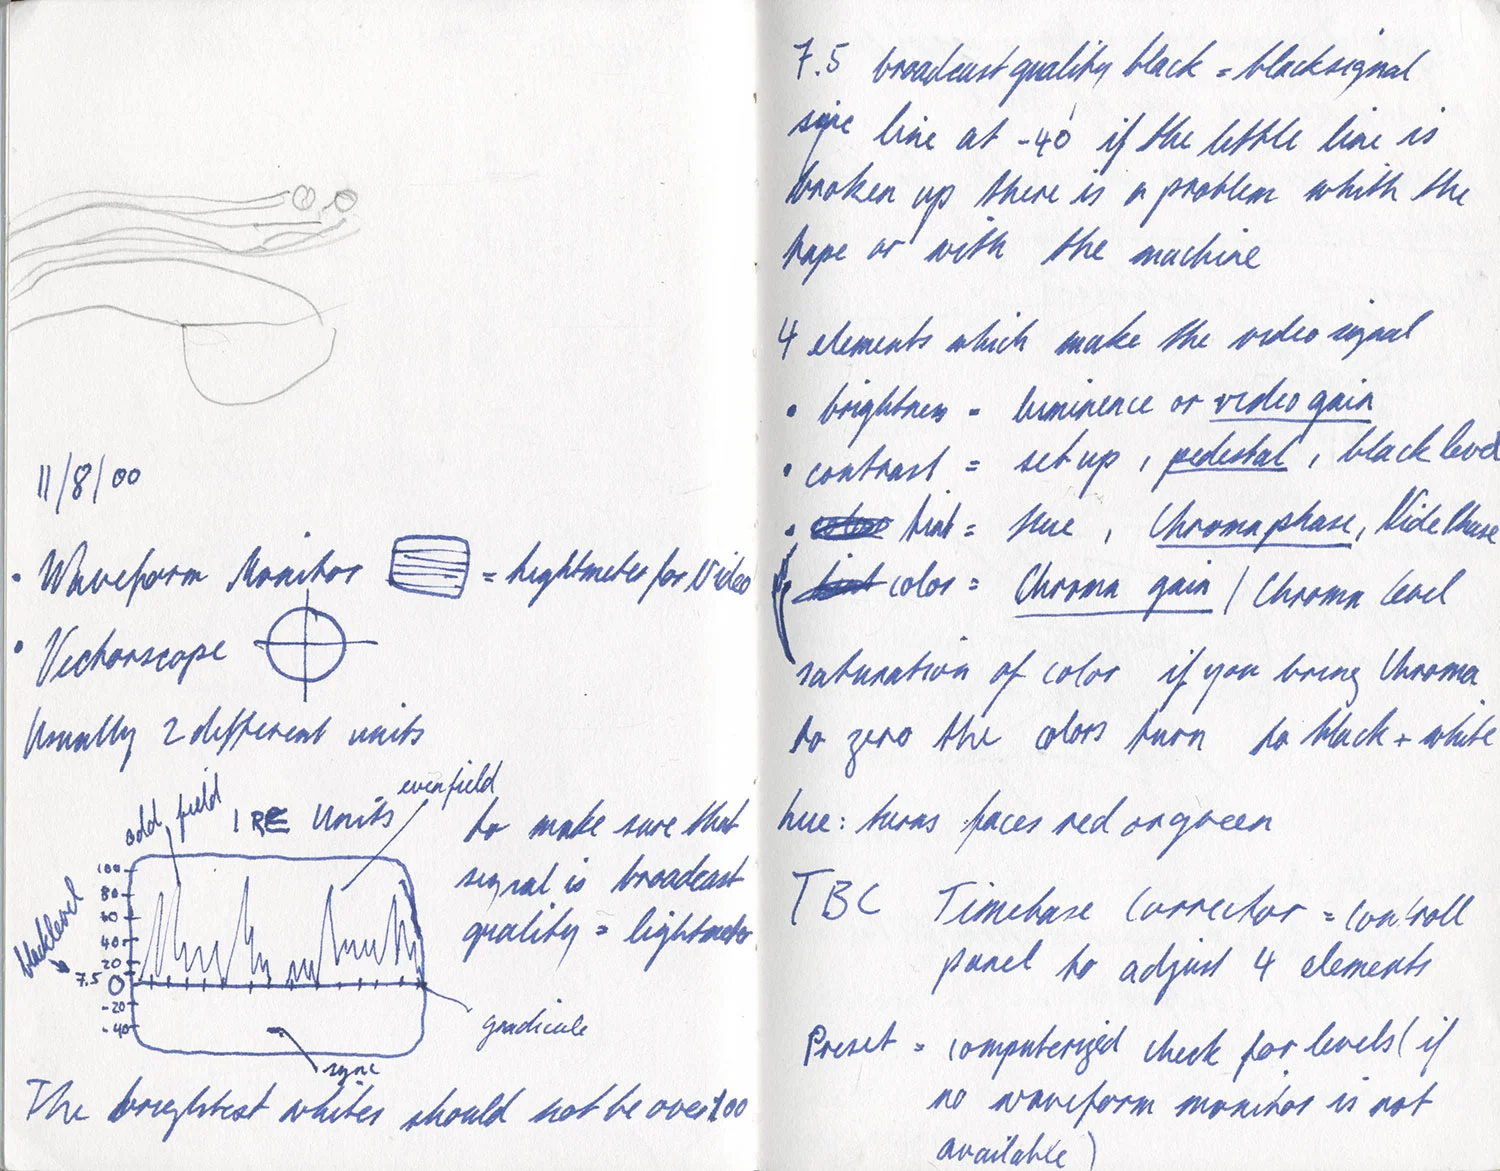 11/8/00
• Waveform Monitor = lightmeter for Video
• Vectorscope
Usually 2 different units
odd field
IRE Units
evenfield
to make sure that
signal is broadcast
quality = lightmeter
blacklevel
100
80
60
40
20
7.5
0
-20
-40
gradicule
sync
The brightest whites should not be over 100
7.5 broadcast quality black = blacksignal
sync line at -40 if the little line is
broken up there is a problem whith the
tape or with the machine
4 elements which make the video signal
• brightness = luminence or video gain
• contrast = set up, pedestal, black level
• tint = Hue, Chroma phase, Vide Phase
color = Chroma gain / Chroma level
saturation of color if you bring Chroma
to zero the colors turn to black + white
hue: turns faces red or green
TBC Timebase Corrector = controll
panel to adjust 4 elements
Preset = computerized check for levels (if
no waveform monitor is not
available)